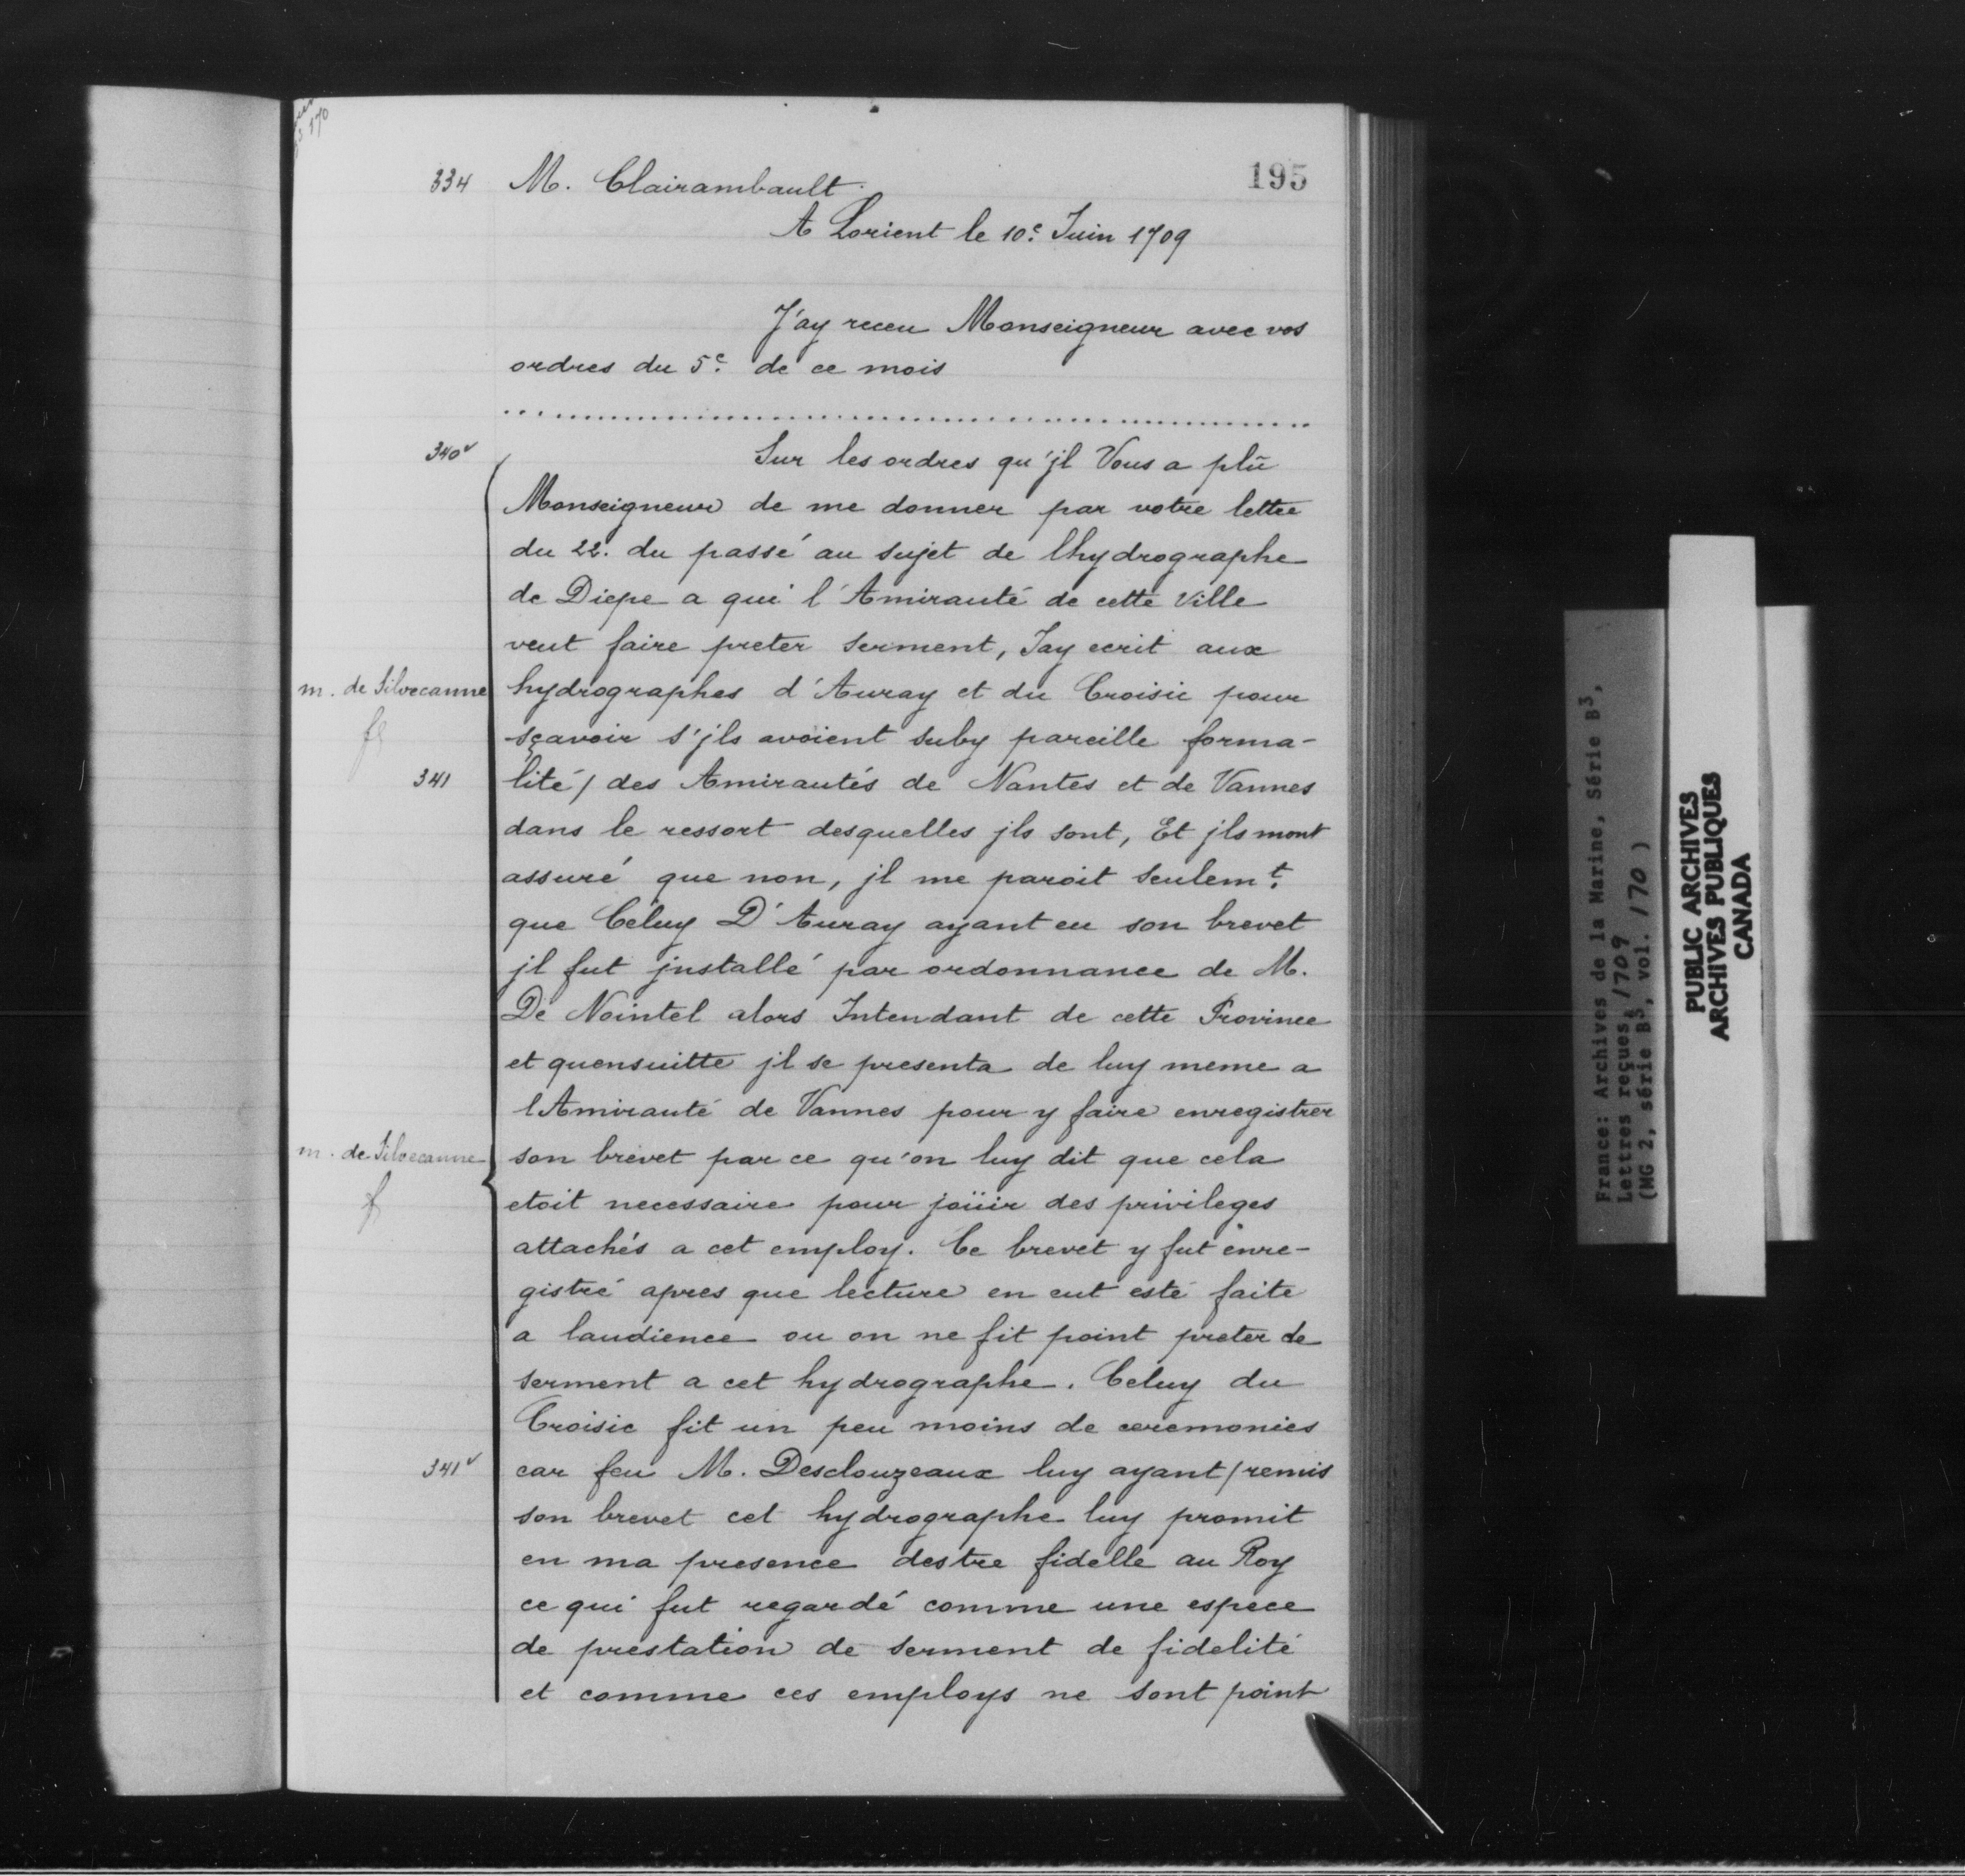 195
334 M. Clairambault.
A Lorient le 10e. Juin 1709
J'ay receu Monseigneur avec vos
ordres du 5e. de ce mois
........................................................
340v Sur les ordres qu'jl Vous a plû
Monseigneur de me donner par votre lettre
du 22. du passé au sujet de lhydrographe
de Diepe a qui l'Amirauté de cette Ville
veut faire preter serment, Jay ecrit aux
m. de Silvecanne hydrographes d'Auray et du Croisic pour
sçavoir s'jls avoient suby pareille forma-
341 lité / des Amirautés de Nantes et de Vannes
dans le ressort desquelles jls sont, Et jls mont
assuré que non, jl me paroit seulemt.
que Celuy D'Auray ayant eu son brevet
jl fut jnstallé par ordonnance de M.
De Nointel alors Intendant de cette Province
et quensuitte jl se presenta de luy meme a
lAmirauté de Vannes pour y faire enregistrer
m. de Silvecanne son brevet par ce qu'on luy dit que cela
etoit necessaire pour joüir des privileges
attachés a cet employ. Ce brevet y fut enre-
gistré apres que lecture en eut esté faite
a laudience ou on ne fit point preter de
serment a cet hydrographe. Celuy du
Croisic fit un peu moins de ceremonies
341v car feu M. Desclouzeaux luy ayant / remis
son brevet cet hydrographe luy promit
en ma presence destre fidelle au Roy
ce qui fut regardé comme une espece
de prestation de serment de fidelité
et comme ces employs ne sont point
France: Archives de la Marine, Série B3,
Lettres reçues, 1709
(MG 2, série B3, vol. 170 )
PUBLIC ARCHIVES
ARCHIVES PUBLIQUES
CANADA